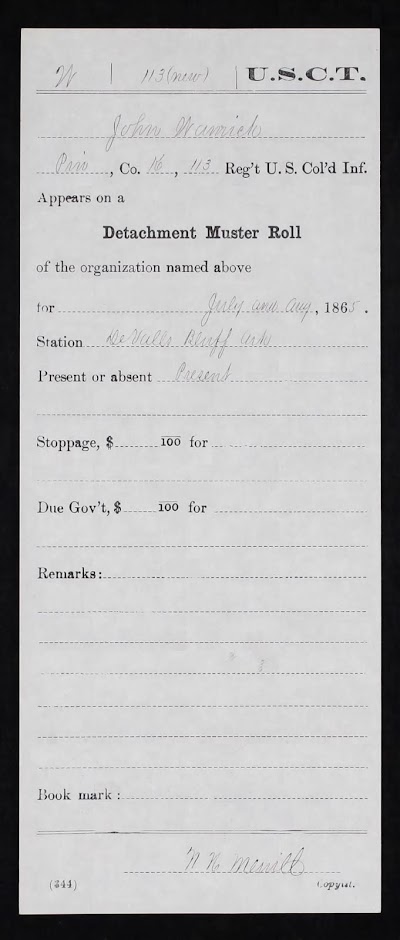 W | 113(new) | U.S.C.T.
John Warrick
Priv, Co. 16, 113 Reg't U. S. Col'd Inf.
Appears on a
Detachment Muster Roll
of the organization named above
for July and Aug, 1865.
Station De Valls Bluff Ark
Present or absent Present
Stoppage, $ 100 for
Due Gov't, $ 100 for
Remarks:
Book mark:
Merrill
(344) Copyist.